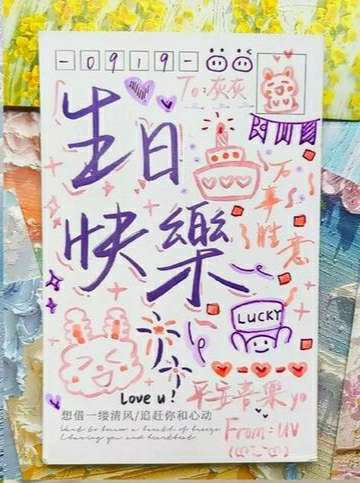 -0919-
To:灰灰
生日
快樂
万事胜意
LUCKY
Love u!
平安喜樂 yo
想借一缕清风/追赶你和心动
From:UV